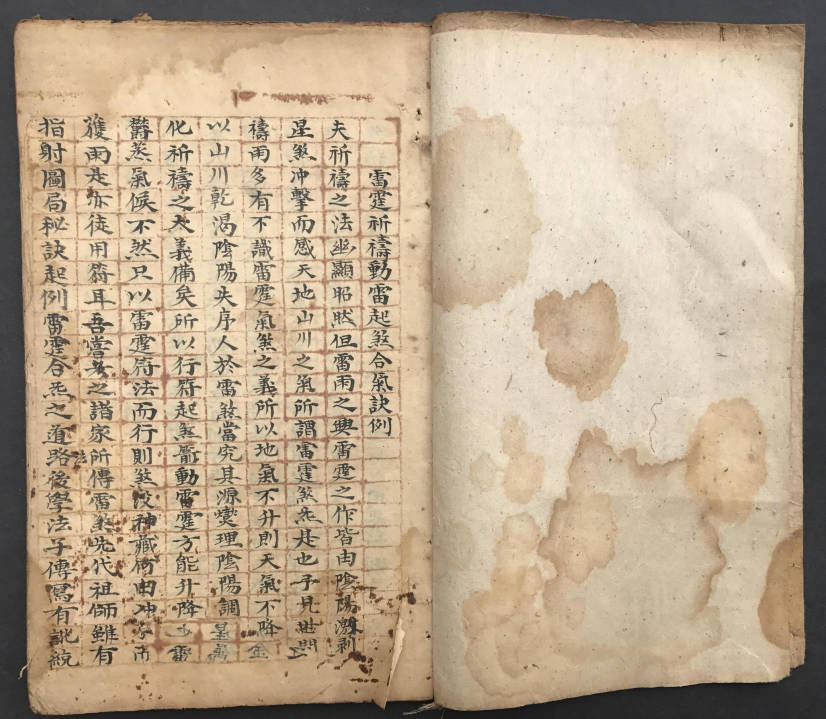 雷霆祈禱動雷起煞合氣訣例
夫祈禱之法幽顯昭然但雷雨之興雷霆之作皆由陰陽激剝
星煞冲擊而感天地山川之氣所謂雷霆煞炁是也予見世間
禱雨多有不識雷霆氣煞之義所以地氣不升則天氣不降
以山川乾渴陰陽失序人於雷煞當究其源燮理陰陽調
化祈禱之大義備矣所以行符起煞動雷霆方能升降雷
欝蒸氣候不然只以雷霆符法而行則煞沒神藏何由冲
獲雨是亦徒用符耳吾嘗之諸家所傳雷煞先代祖師雖有
指射圖局秘訣起例雷霆合炁之道路後學法子傳寫有訛